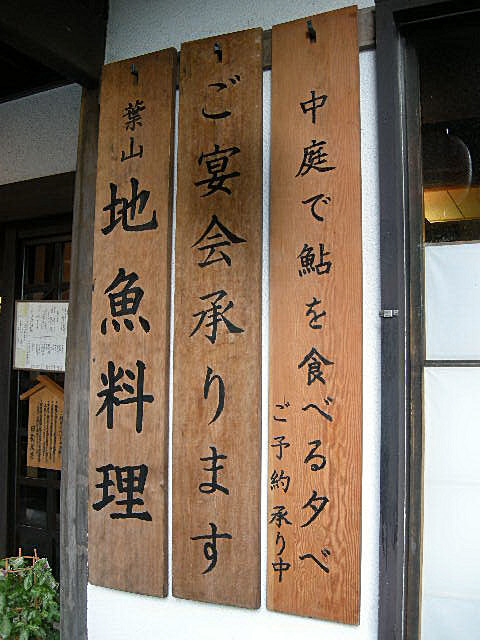 中庭で鮎を食べる夕べ
ご予約承り中
ご宴会承ります
葉山
地魚料理